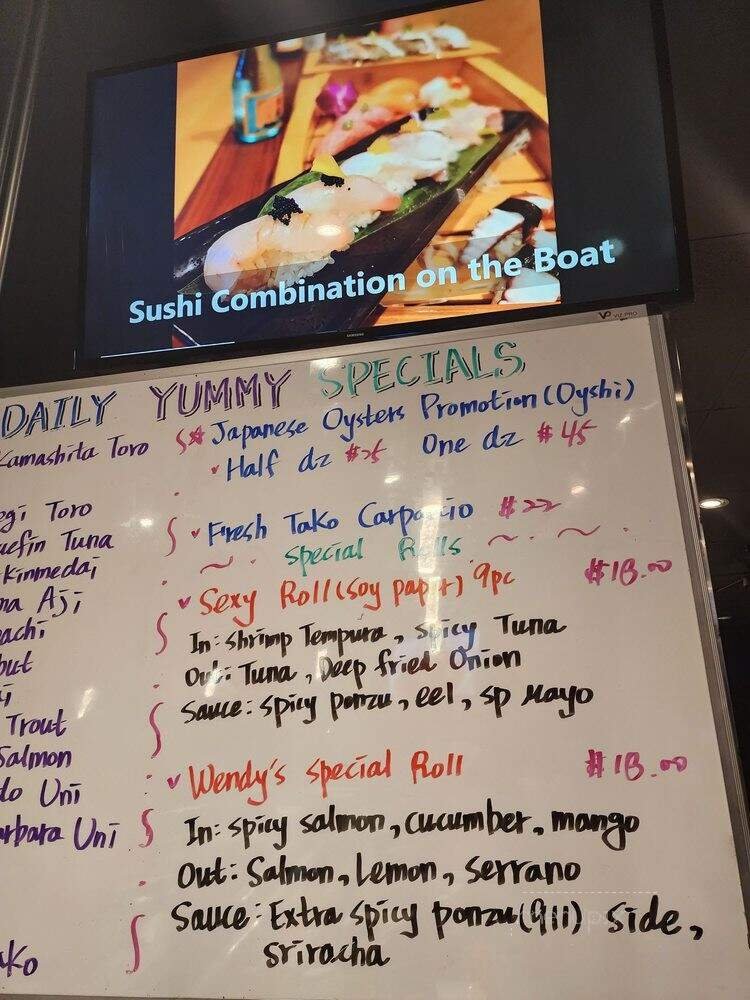 Sushi Combination on the Boat
SAMSUNG
VIZ-PRO
DAILY YUMMY SPECIALS
Kamashita Toro
Toro
Tuna
Kinmedai
Aji
Trout
Salmon
Uni
Uni
Japanese Oysters Promotion (Oyshi)
Half dz $25 One dz $45
Fresh Tako Carpaccio $22
Special Rolls
Sexy Roll (soy paper) 9pc $18.00
In: shrimp Tempura, spicy Tuna
Out: Tuna, Deep fried Onion
Sauce: spicy ponzu, eel, sp Mayo
Wendy's special Roll $18.00
In: spicy salmon, cucumber, mango
Out: Salmon, Lemon, serrano
Sauce: Extra spicy ponzu (911) side,
sriracha